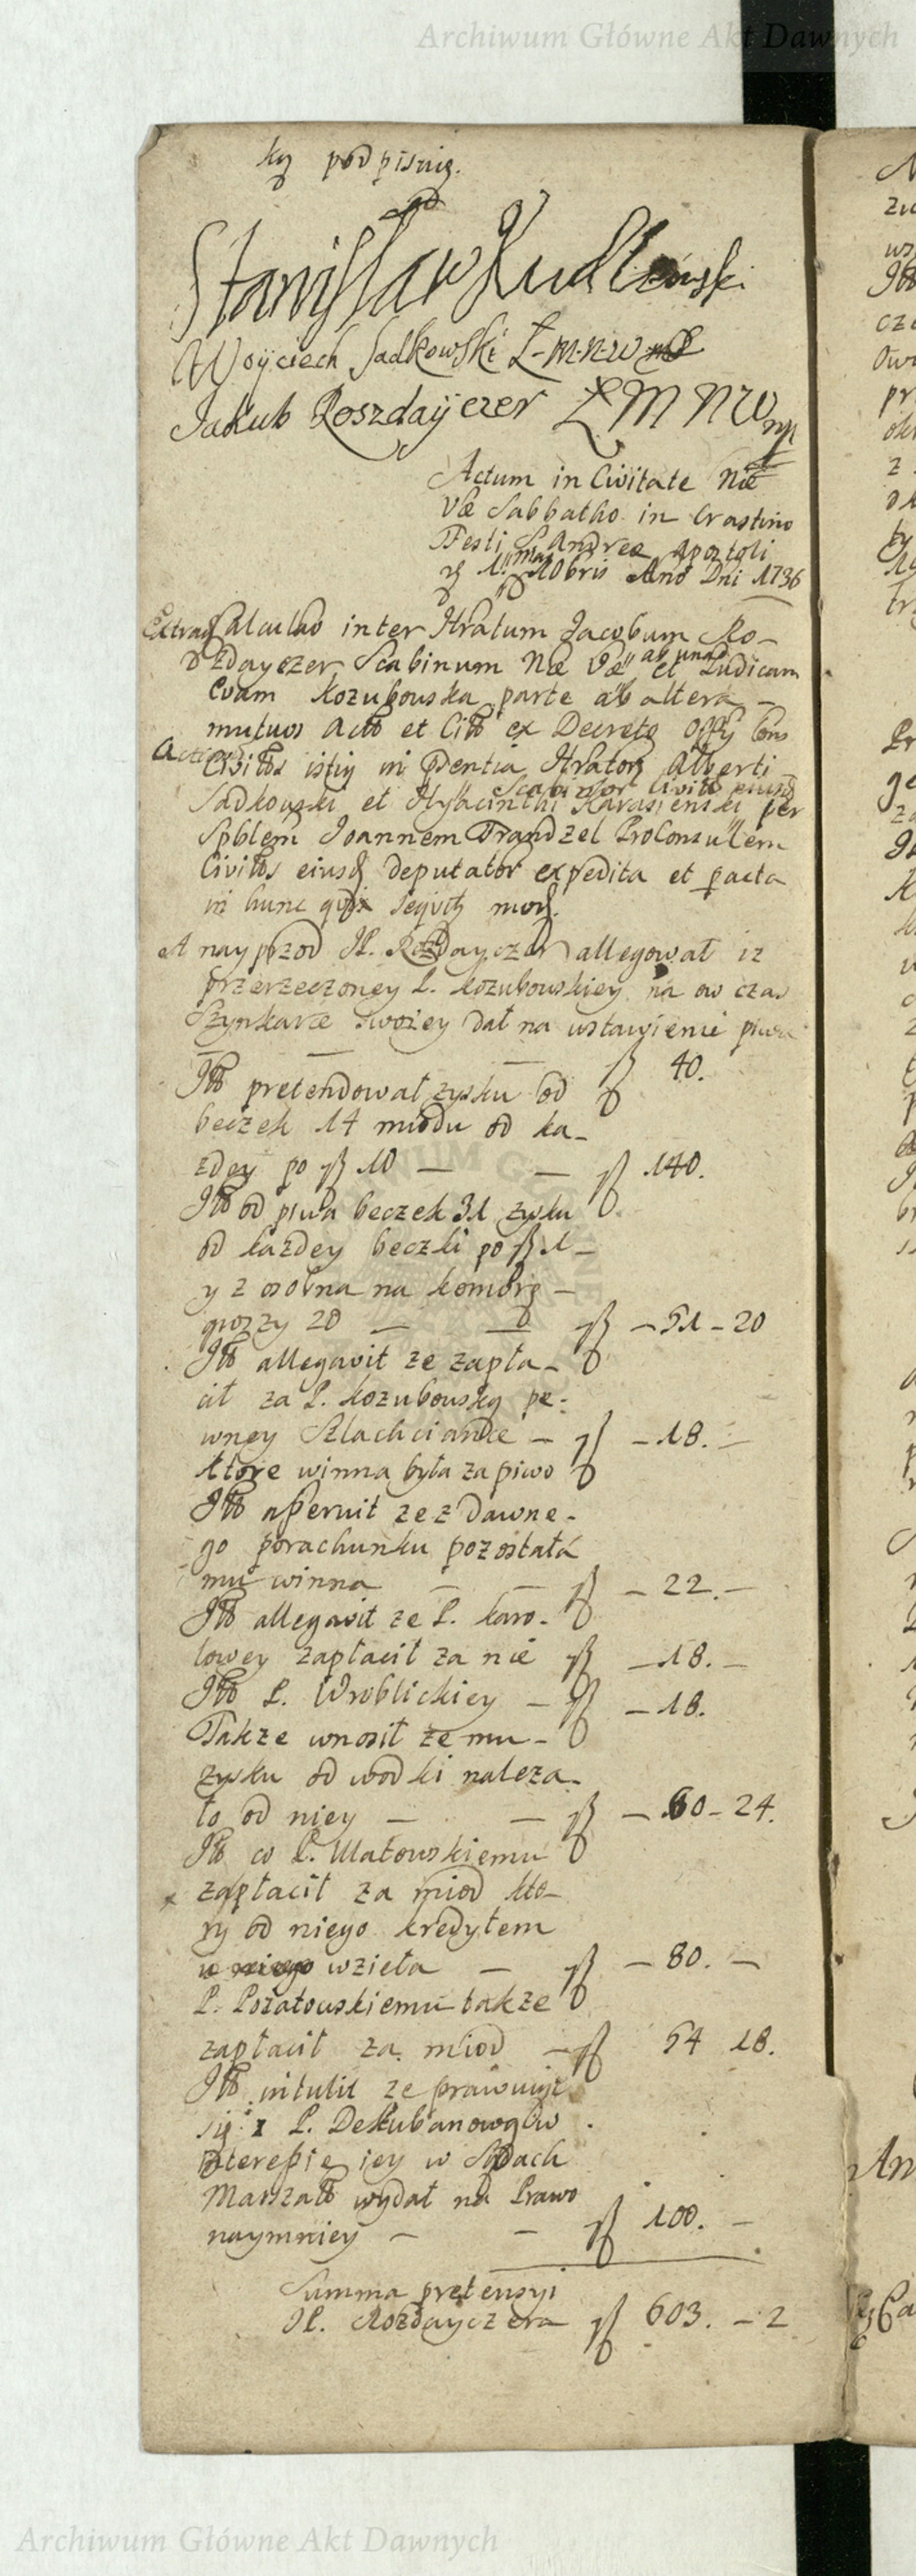 Archiwum Główne Akt Dawnych
ką podpisuię.
Stanisław Kudl
Woyciech Sadkowski Ł-M-N-W mp
Jakub Roszdaÿczer Ł M N W mp
Actum in Civitate Næ
Væ Sabbatho in Crastino
Festi S. Andreæ Apostoli
1ma Xbris Ano Dni 1736
Extrad Calculao inter Hratum Jacobum Ro-
zdayczer Scabinum Næ Væ ab una et Ludicam
Evam Kozubouska parte ab altera -
mutuos Actô et Citô ex Decreto Offÿ Cons
Civitts istiq in pdentia Hrator Alberti
Actionis
Scabinor Civitts eiusd
Sadkouski et Hyacinthi Karasienski per
Spblem Joannem Frandzel ProConsulem
Civitts eiusd deputator expedita et facta
in hunc qui sequitr mod.
A nayprzod JP. Rozdayczer allegował iz
przerzeczoney P. Kozubouskiey na ow czas
Szynkarce swoiey dał na ustawienie piwa
— — ƒ 40.
Itô pretendował zysku od
beczek 14 miodu od ka-
zdey po ƒ 10 — — ƒ 140.
Itô od piwa beczek 31 zysku
od kazdey beczki po ƒ 1 -
y z osobna na komorę -
groszy 20 — — ƒ - 51 - 20
Itô allegavit ze zapła-
cił za P. Kozubouską pe-
wney Szlachciance - ƒ - 18. -
ktore winna była za piwo
Itô aperuit ze z dawne-
go porachunku pozostała
mu winna — — ƒ - 22. -
Itô allegavit ze P. Karo-
lowey zapłacił za nie ƒ - 18. -
Itô P. Wroblickiey - ƒ - 18.
Takze wnosił ze mu -
zysku od wodki naleza-
ło od niey — — ƒ - 60 - 24.
Itô co P. Małouskiemu
zapłacił za miod kto-
ry od niego kredytem
wzieła — ƒ - 80. -
P. Pozatouskiemu takze
zapłacił za miod - ƒ 54 18.
Itô intulit ze prawuiąc
się z P. Dekubanowąlw
interesie iey w Sądach
Marszałô wydał na Prawo
naymniey — — ƒ 100. -
Summa pretensyi
JP. Rozdayczera ƒ 603. - 2
Archiwum Główne Akt Dawnych